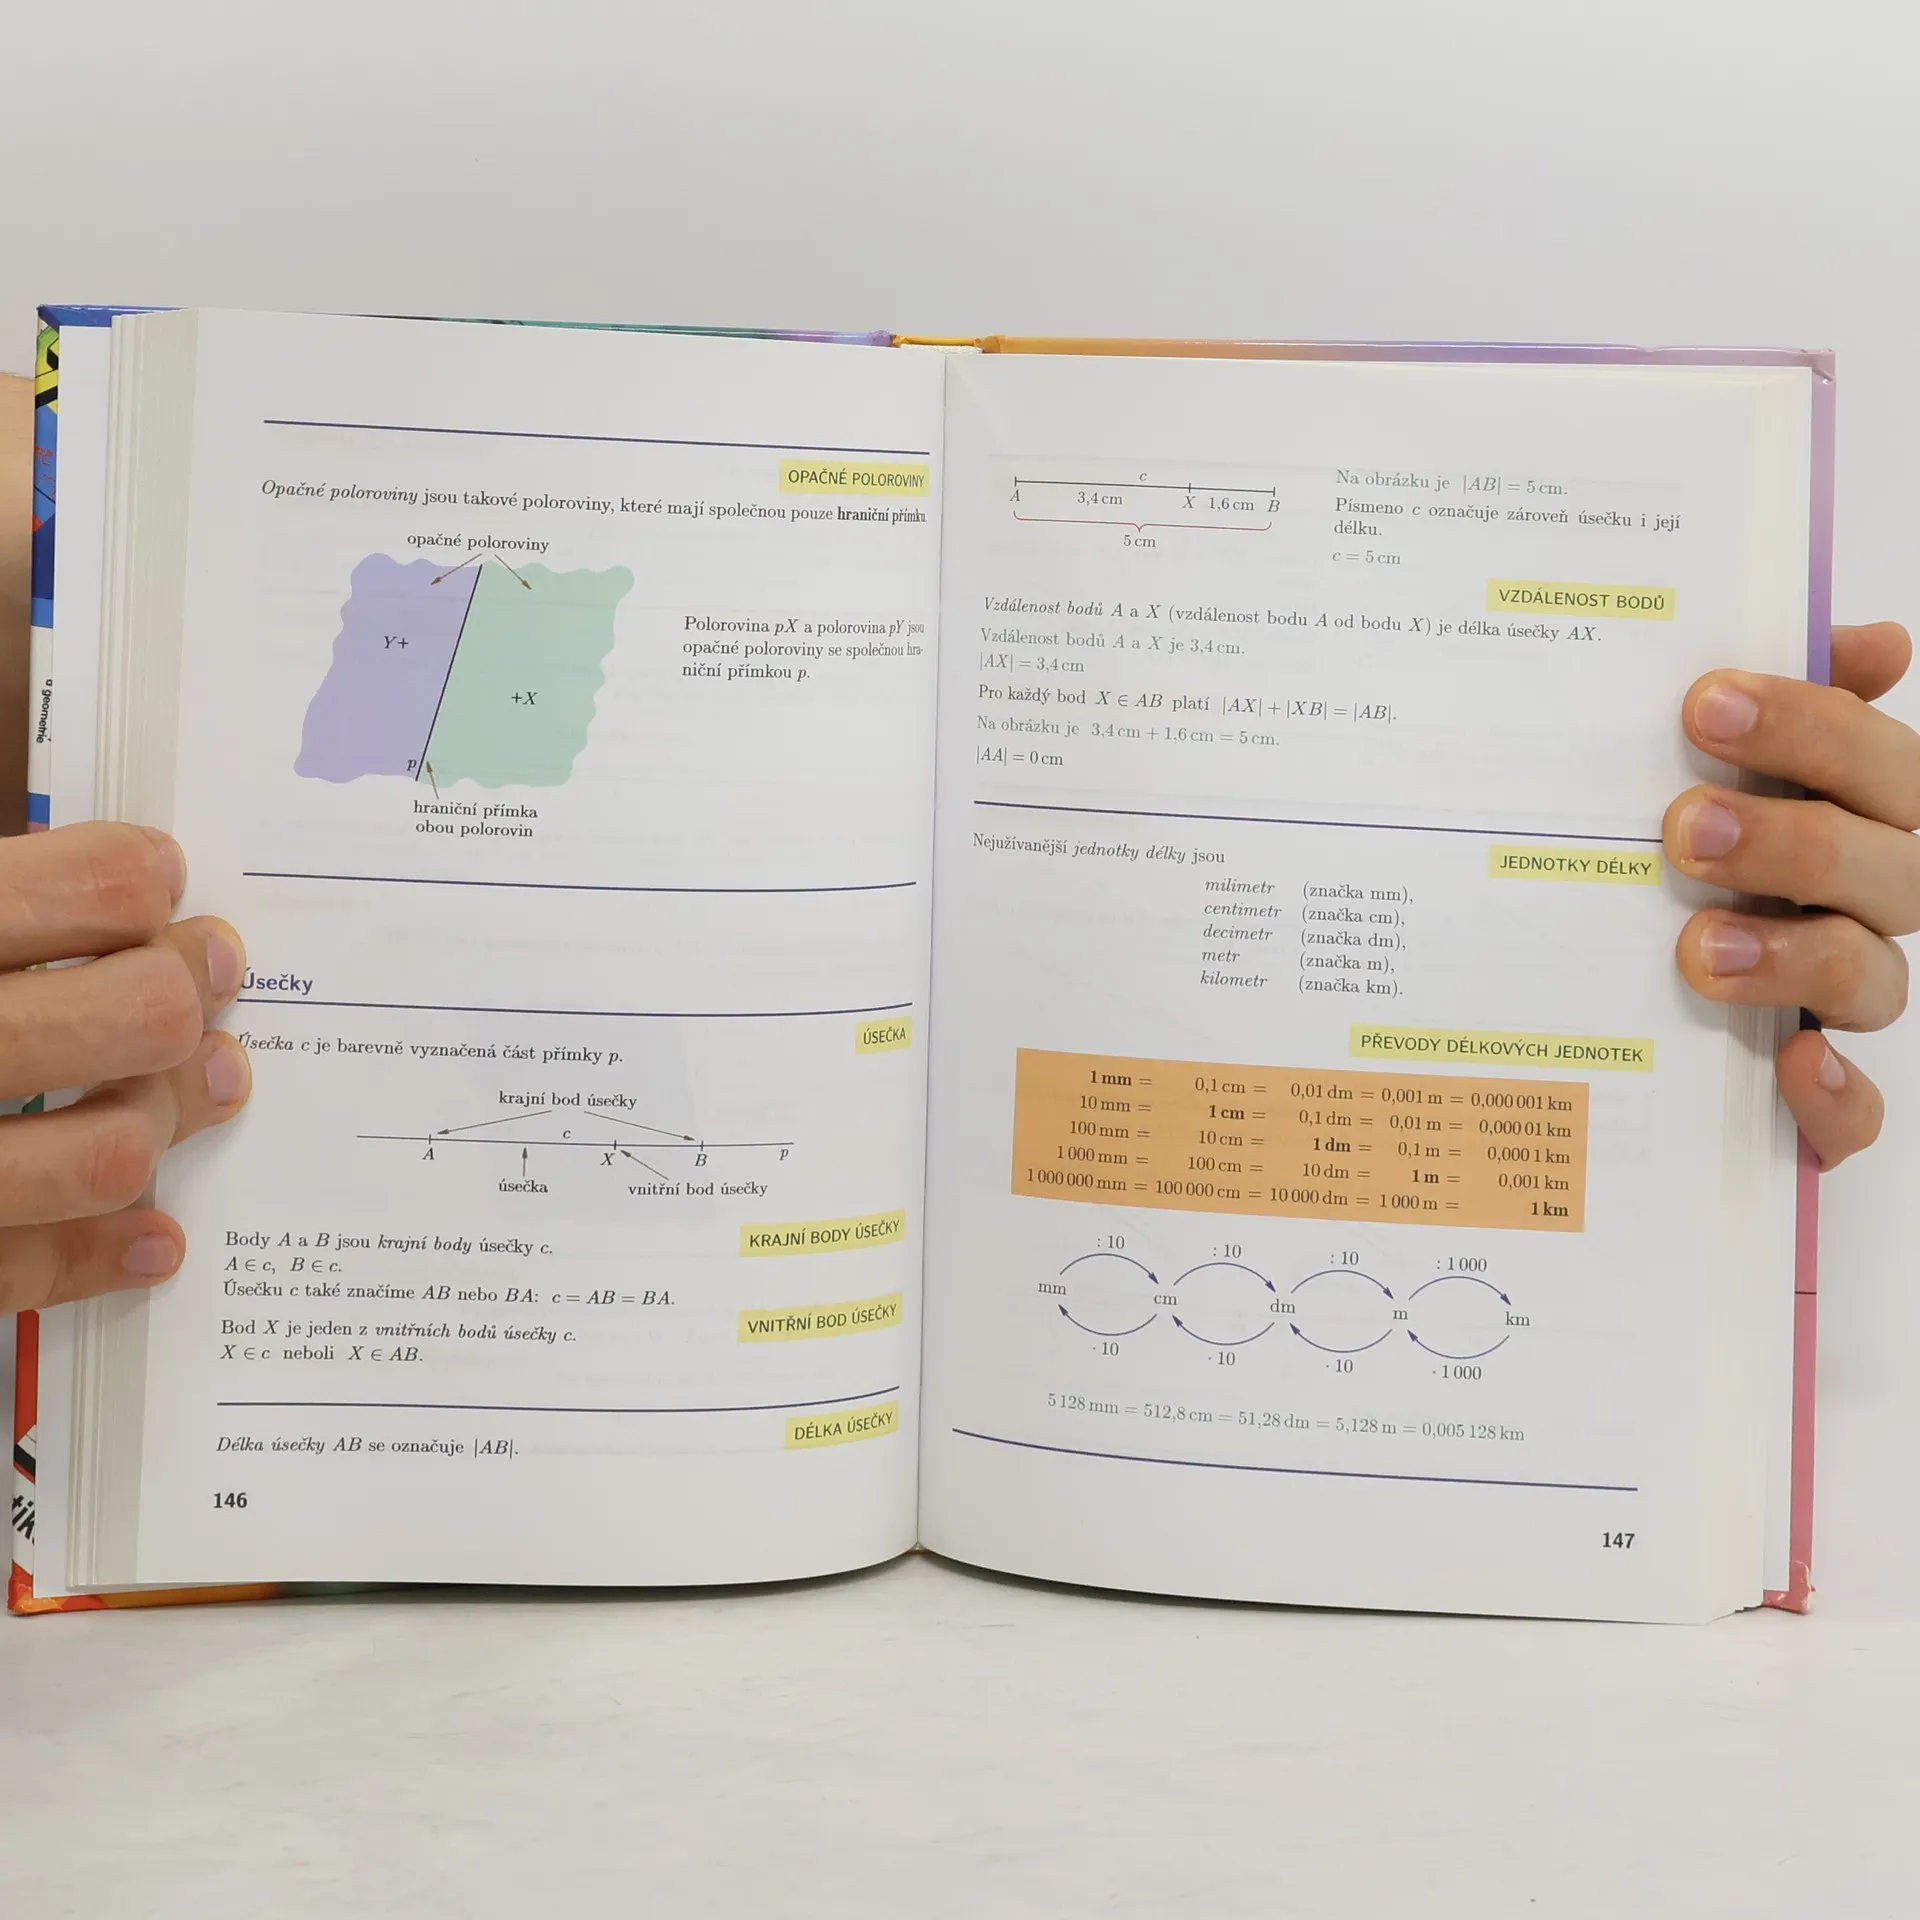 OPAČNÉ POLOROVINY
Opačné poloroviny jsou takové poloroviny, které mají společnou pouze hraniční přímku
opačné poloroviny
Y+
+X
p
hraniční přímka
obou polorovin
Polorovina pX a polorovina pY jsou
opačné poloroviny se společnou hra-
niční přímkou p.
Úsečky
ÚSEČKA
Úsečka c je barevně vyznačená část přímky p.
krajní bod úsečky
c
A
X
B
p
úsečka
vnitřní bod úsečky
KRAJNÍ BODY ÚSEČKY
Body A a B jsou krajní body úsečky c.
A ∈ c, B ∈ c.
Úsečku c také značíme AB nebo BA: c = AB = BA.
VNITŘNÍ BOD ÚSEČKY
Bod X je jeden z vnitřních bodů úsečky c.
X ∈ c neboli X ∈ AB.
DÉLKA ÚSEČKY
Délka úsečky AB se označuje |AB|.
146
c
A 3,4 cm X 1,6 cm B
5 cm
Na obrázku je |AB| = 5 cm.
Písmeno c označuje zároveň úsečku i její
délku.
c = 5 cm
VZDÁLENOST BODŮ
Vzdálenost bodů A a X (vzdálenost bodu A od bodu X) je délka úsečky AX.
Vzdálenost bodů A a X je 3,4 cm.
|AX| = 3,4 cm
Pro každý bod X ∈ AB platí |AX| + |XB| = |AB|.
Na obrázku je 3,4 cm + 1,6 cm = 5 cm.
|AA| = 0 cm
JEDNOTKY DÉLKY
Nejužívanější jednotky délky jsou
milimetr (značka mm),
centimetr (značka cm),
decimetr (značka dm),
metr (značka m),
kilometr (značka km).
PŘEVODY DÉLKOVÝCH JEDNOTEK
1 mm = 0,1 cm = 0,01 dm = 0,001 m = 0,000 001 km
10 mm = 1 cm = 0,1 dm = 0,01 m = 0,000 01 km
100 mm = 10 cm = 1 dm = 0,1 m = 0,000 1 km
1 000 mm = 100 cm = 10 dm = 1 m = 0,001 km
1 000 000 mm = 100 000 cm = 10 000 dm = 1 000 m = 1 km
: 10 : 10 : 10 : 1 000
mm cm dm m km
· 10 · 10 · 10 · 1 000
5 128 mm = 512,8 cm = 51,28 dm = 5,128 m = 0,005 128 km
147
a geometrie